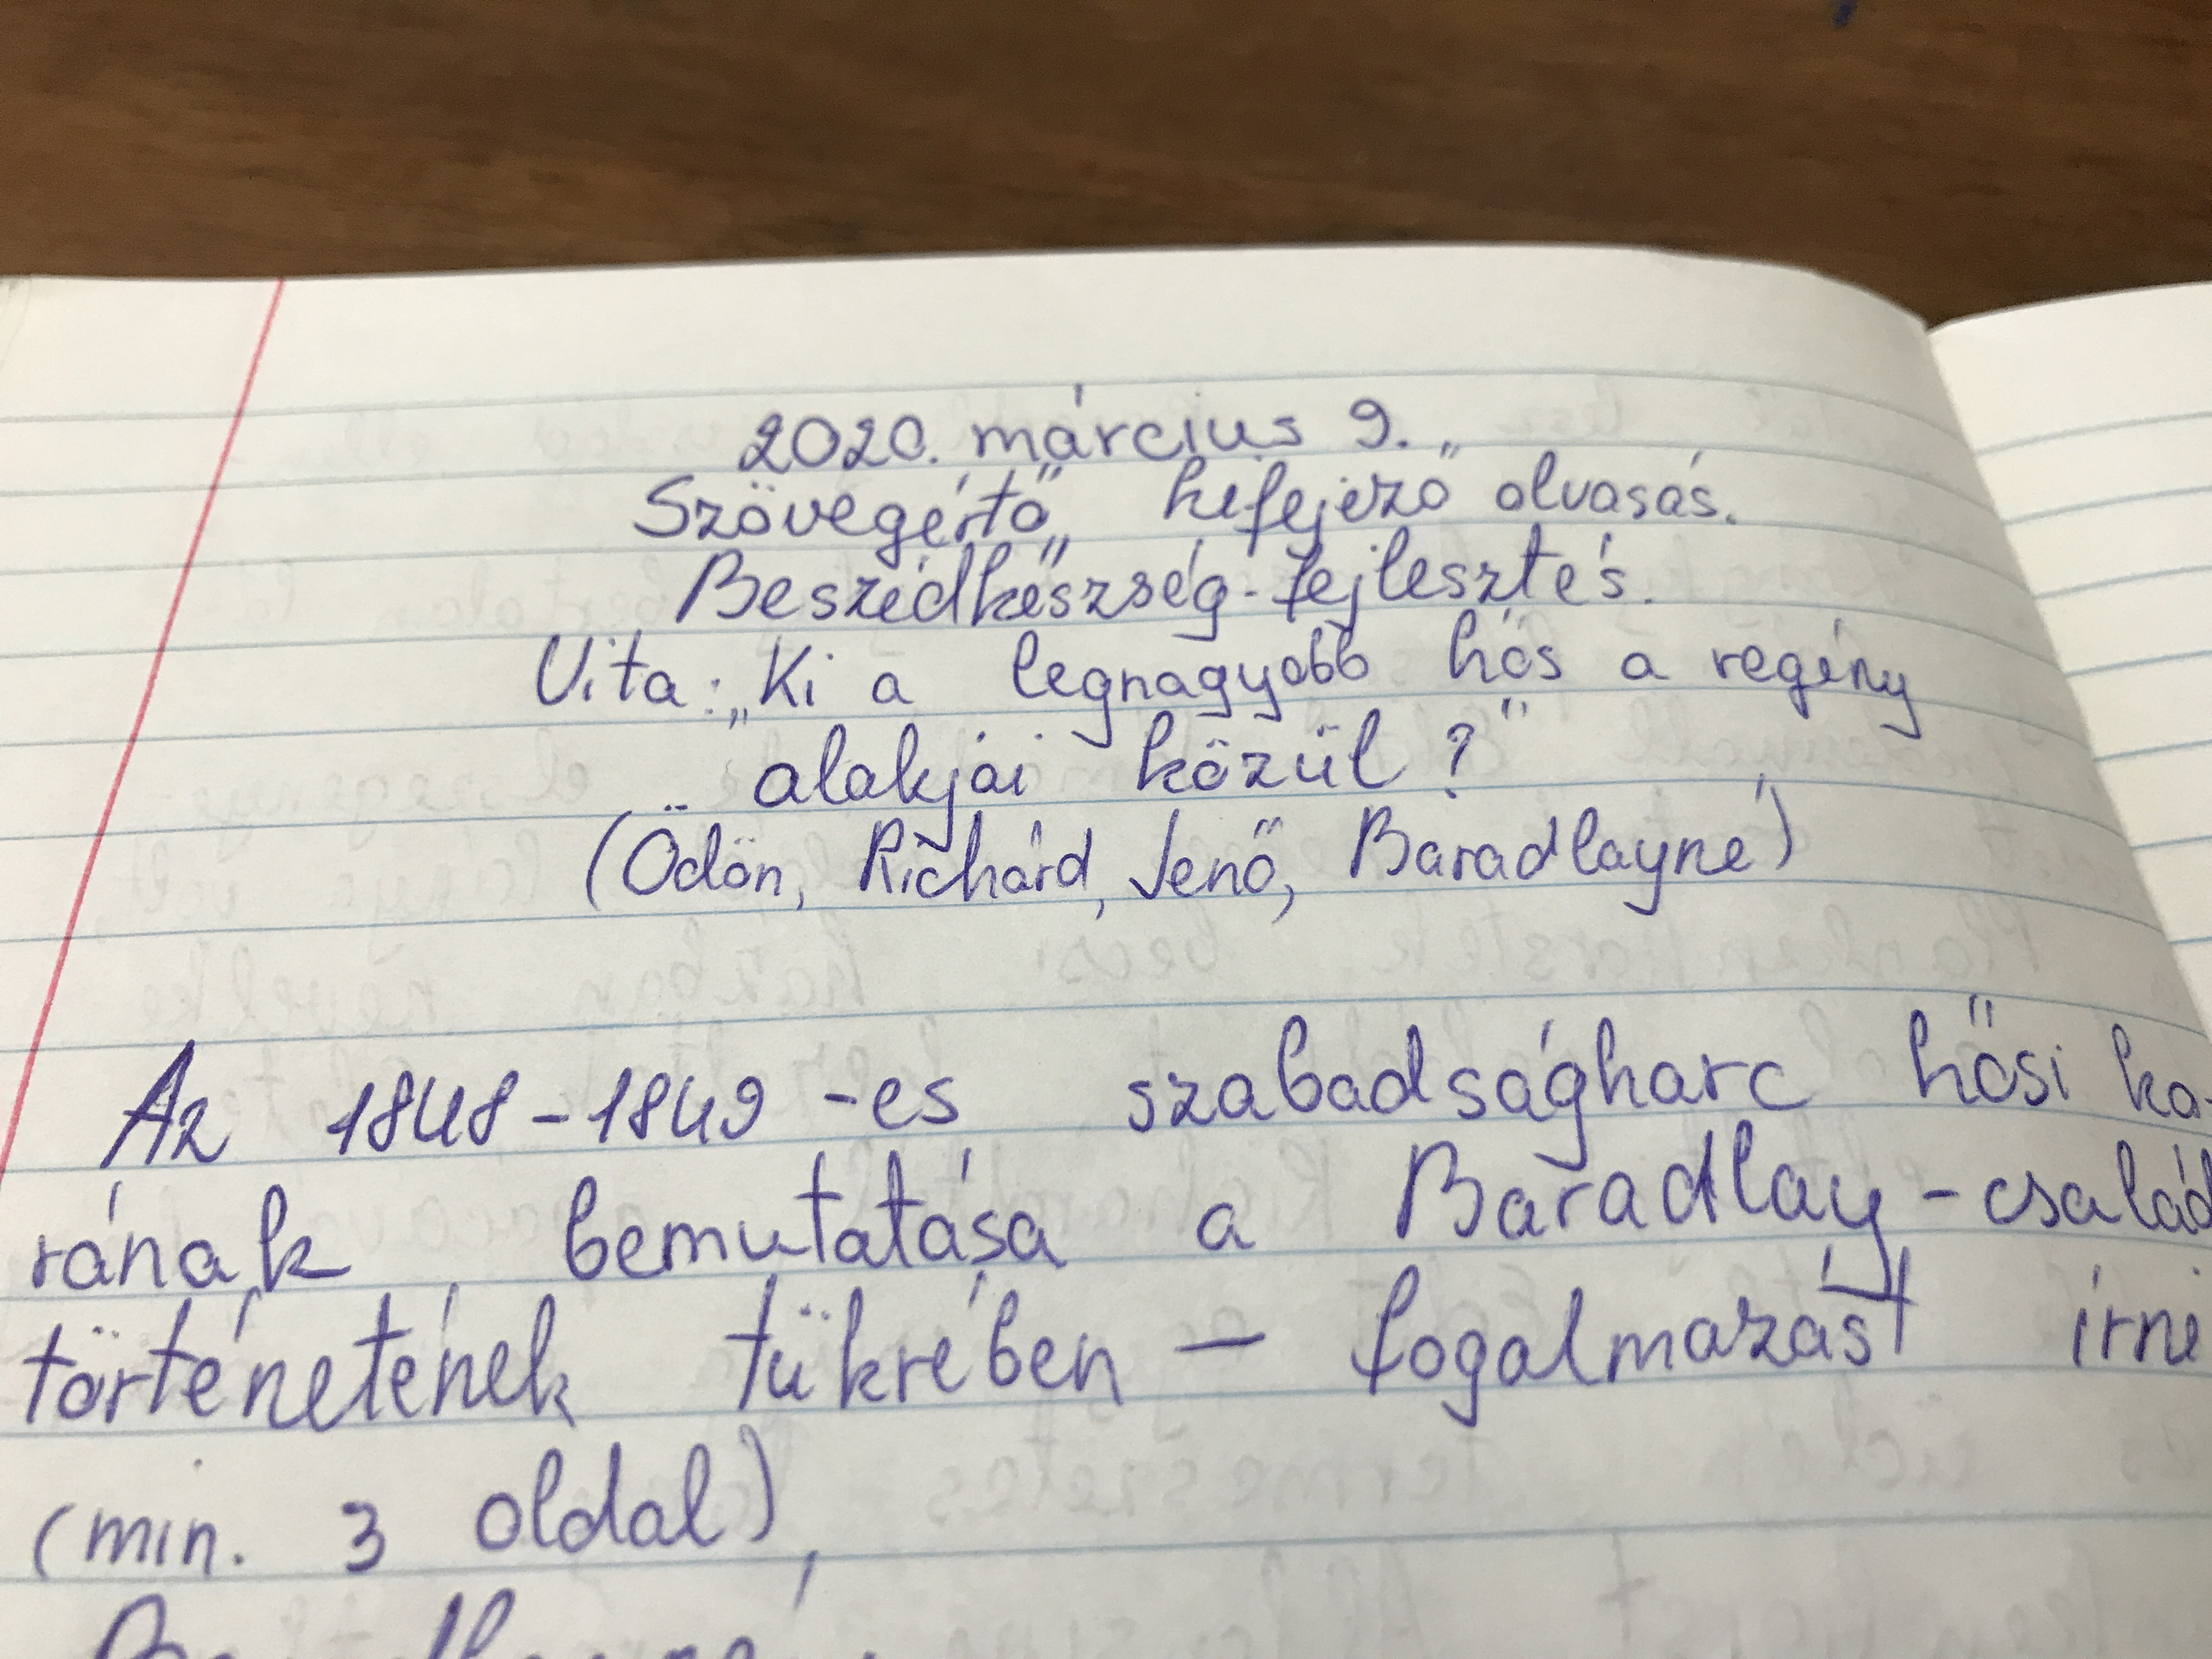 2020. március 9.
Szövegértő, kifejező olvasás.
Beszédkészség-fejlesztés.
Vita: „Ki a legnagyobb hős a regény
alakjai közül?"
(Ödön, Richárd, Jenő, Baradlayné)
Az 1848-1849-es szabadságharc hősi ko-
rának bemutatása a Baradlay-család
történetének tükrében – fogalmazást írni
(min. 3 oldal),